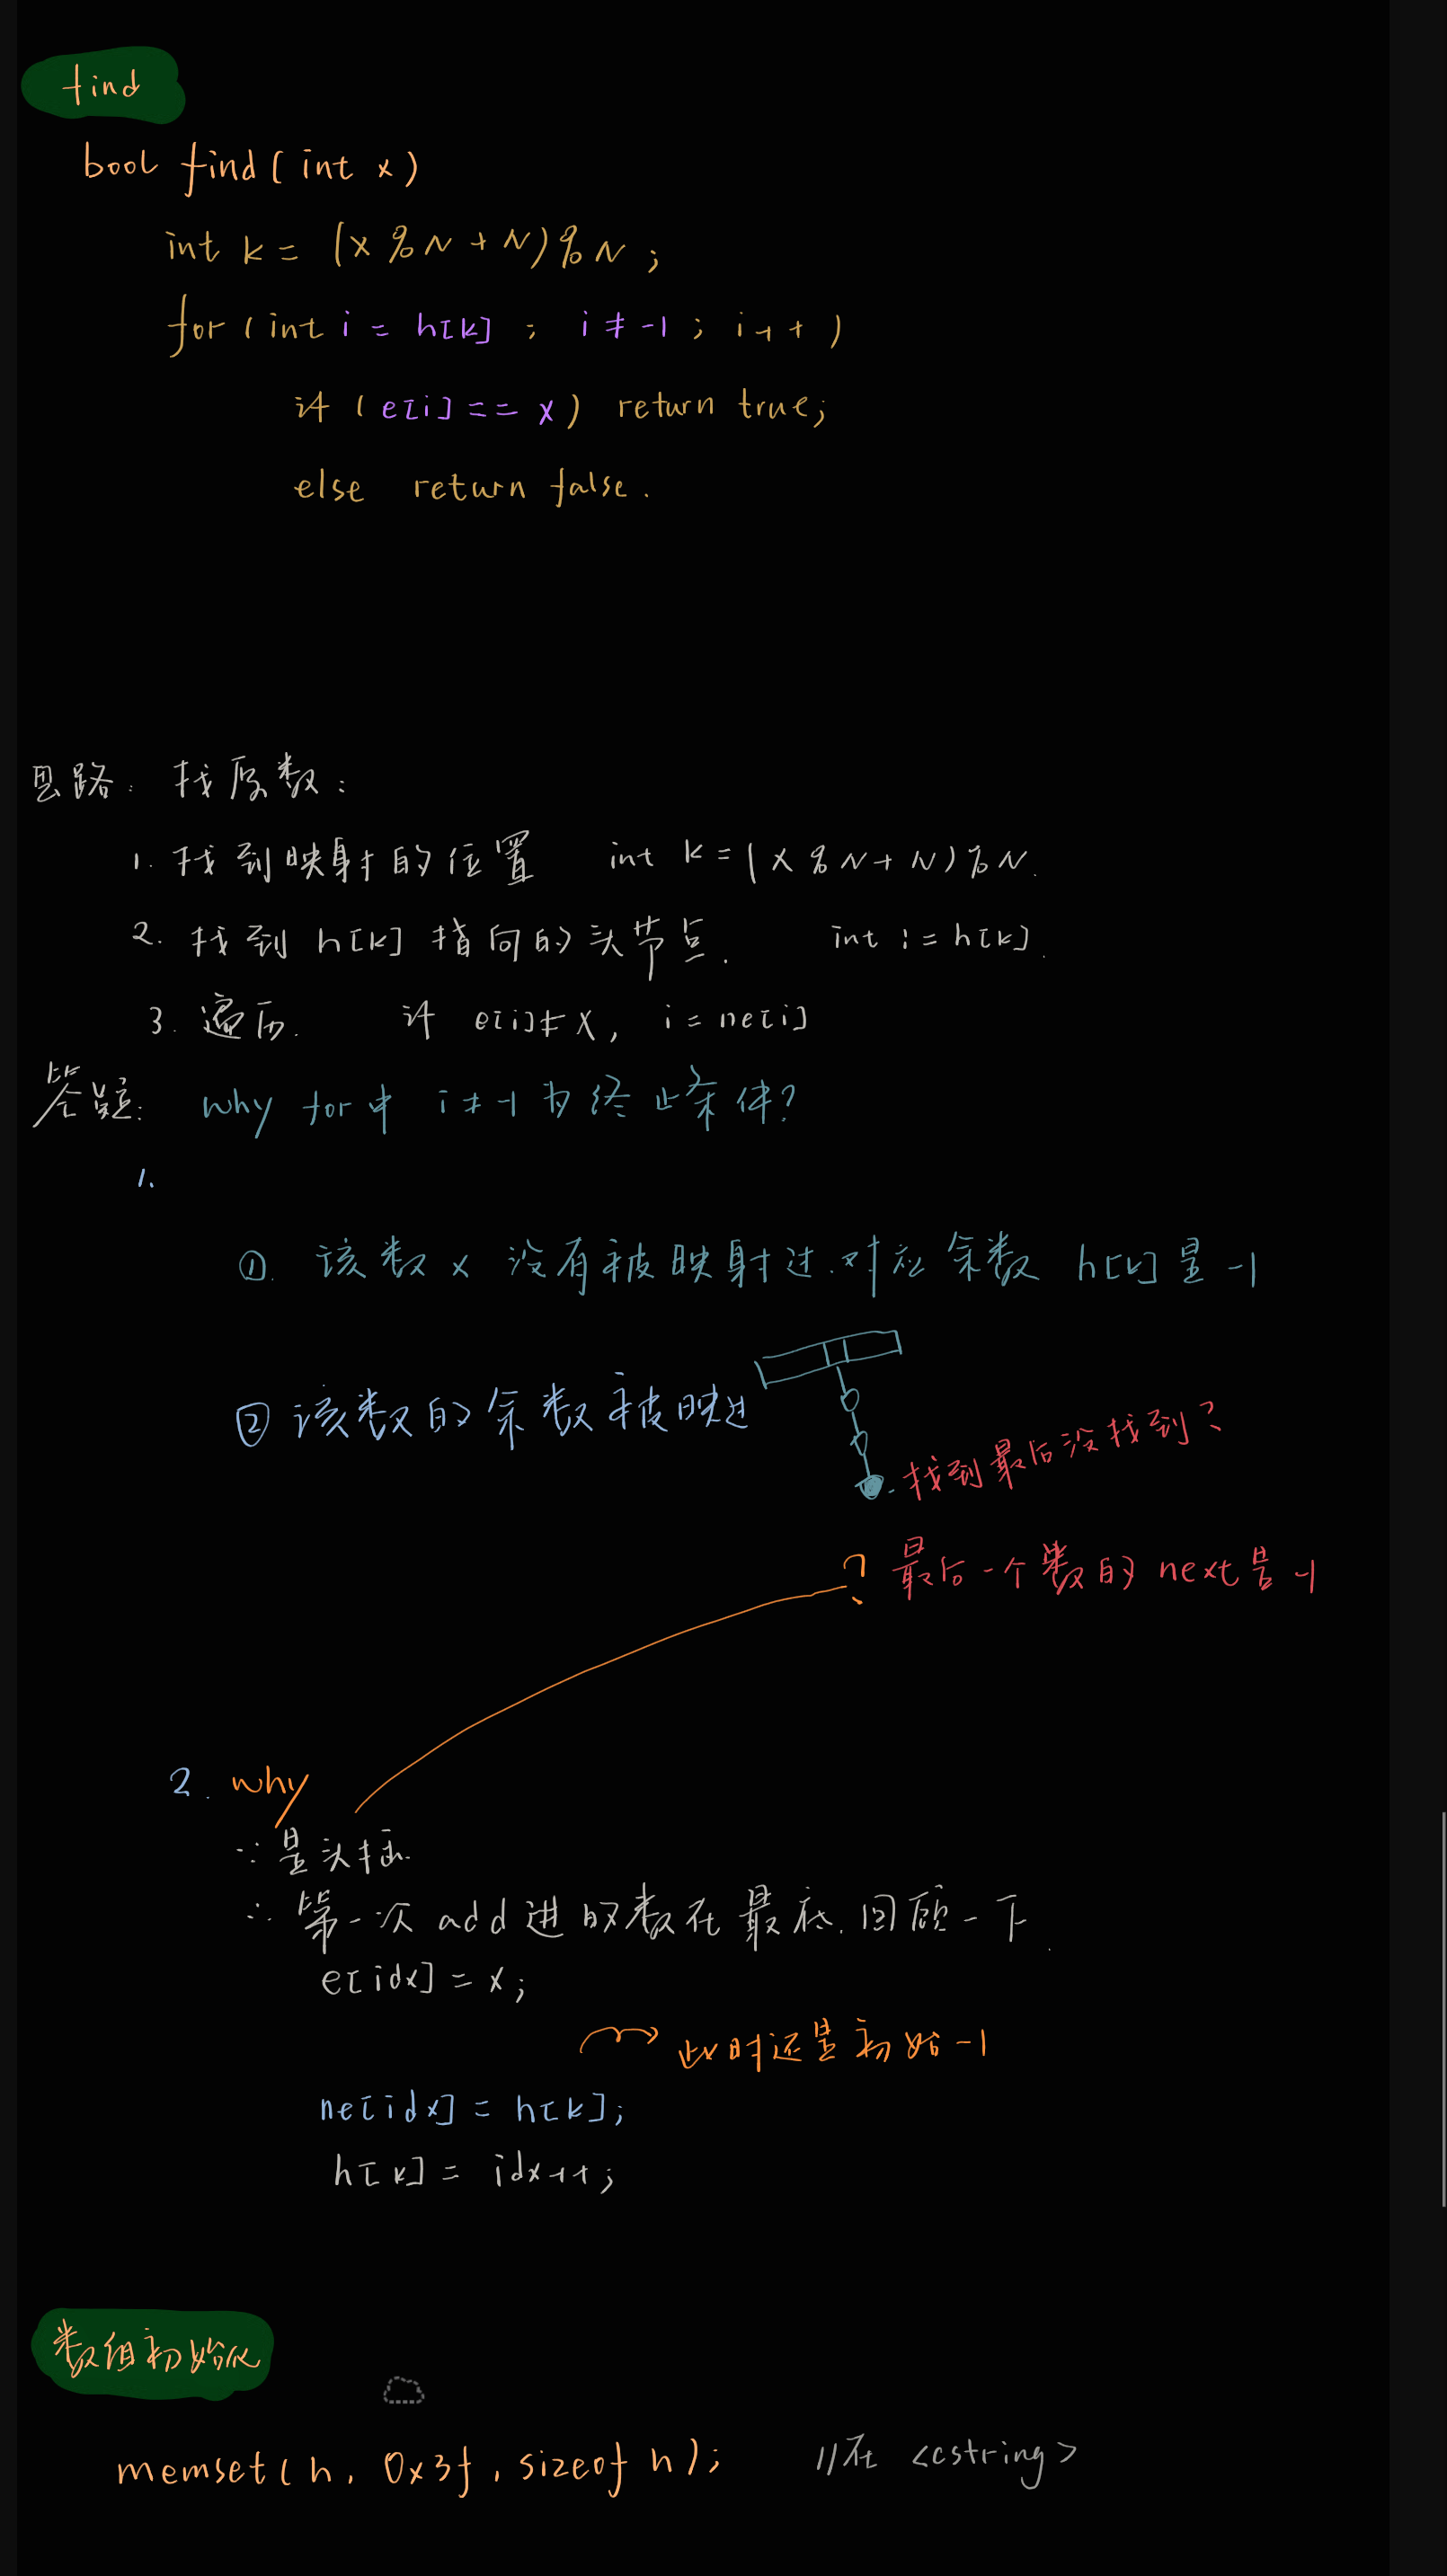 find
bool find(int x)
int k = (x % N + N) % N ;
for (int i = h[k] ; i ≠ -1 ; i++ )
if (e[i] == x) return true;
else return false.
思路: 找原数:
1. 找到映射的位置 int k = (x % N + N) % N.
2. 找到 h[k] 指向的头节点. int i = h[k].
3. 遍历. if e[i] ≠ x, i = ne[i]
答疑: why for中 i ≠ -1 为终止条件?
1.
①. 该数 x 没有被映射过.对应余数 h[k] 是 -1
② 该数的余数被映过
找到最后没找到?
? 最后一个数的 next是 -1
2. why
∵ 是头插.
∴ 第一次 add 进的数在最底.回顾一下.
e[idx] = x;
此时还是初始 -1
ne[idx] = h[k];
h[k] = idx++;
数组初始化
memset(h, 0x3f, sizeof h); //在 <cstring>